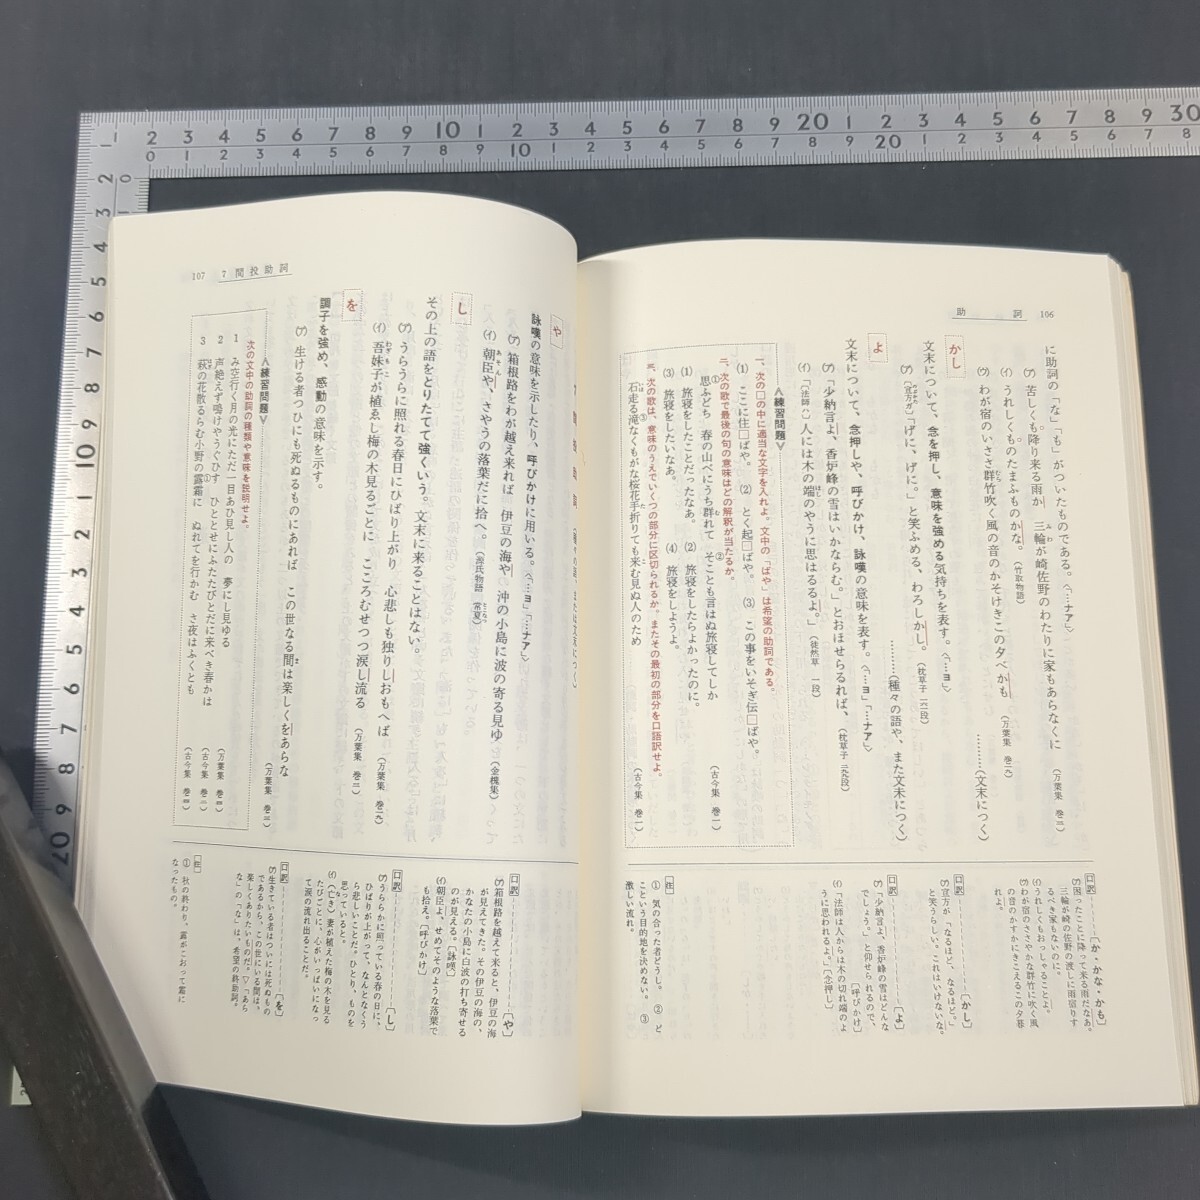 助詞 106
に助詞の「な」「も」がついたものである。〈「…ナア」〉
(ア) 苦しくも降り来る雨か 三輪が崎佐野のわたりに家もあらなくに (万葉集 巻三)
(イ) うれしくものたまふものかな。(竹取物語)
(ウ) わが宿のいささ群竹吹く風の音のかそけきこの夕べかも (万葉集 巻一九)
かし
………(文末につく)
文末について、念を押し、意味を強める気持ちを表す。〈「…ヨ」〉
(ア) 「げに、げに。」と笑ふめる、わろしかし。(枕草子
よ
………(種々の語や、また文末につく)
文末について、念押しや、呼びかけ、詠嘆の意味を表す。〈「…ヨ」「…ナア」〉
(ア) 「少納言よ、香炉峰の雪はいかならむ。」とおほせらるれば、(枕草子
(イ) (「法師ハ) 人には木の端のやうに思はるるよ。」(徒然草 一段)
〈練習問題〉
一、次の□の中に適当な文字を入れよ。文中の「ばや」は希望の助詞である。
(1) ここに住□ばや。 (2) とく起□ばや。 (3) この事をいそぎ伝□ばや。
二、次の歌で最後の句の意味はどの解釈が当たるか。
思ふどち① 春の山べにうち群れて そことも言はぬ②旅寝してしか (古今集 巻一)
(1) 旅寝をしたことだったなあ。 (2) 旅寝をしたらよかったのに。
(3) 旅寝をしたいなあ。 (4) 旅寝をしようよ。
三、次の歌は、意味のうえでいくつの部分に区切られるか。またその最初の部分を口語訳せよ。
石走る③滝なくもがな桜花手折りても来む見ぬ人のため (古今集 巻一)
口訳 〔か・かな・かも〕
(ア)困ったことに降って来る雨だなあ。三輪が崎の佐野の渡しに雨宿りするべき家もないのに。
(イ)うれしくもおっしゃることよ。
(ウ)わが宿のささやかな群竹に吹く風の音のかすかにきこえるこの夕暮れよ。
口訳 〔かし〕
(ア)宣方が「なるほど、なるほど。」と笑うらしい。これはいけないな。
口訳 〔よ〕
(ア)「少納言よ、香炉峰の雪はどんなでしょう。」と仰せられるので、〔呼びかけ〕
(イ)「法師は人からは木の切れ端のように思われるよ。」〔念押し〕
注
① 気の合った者どうし。 ② どこという目的地を決めない。 ③ 激しい流れ。
107 7 間投助詞
や
詠嘆の意味を示したり、呼びかけに用いる。〈「…ヨ」「…ナア」〉
(ア) 箱根路をわが越え来れば 伊豆の海や 沖の小島に波の寄る見ゆ (金槐集)
(イ) 朝臣や、さやうの落葉だに拾へ。(源氏物語 常夏)
し
その上の語をとりたてて強くいう。文末に来ることはない。
(ア) うらうらに照れる春日にひばり上がり 心悲しも独りしおもへば (万葉集 巻一九)
(イ) 吾妹子が植ゑし梅の木見るごとに こころむせつつ涙し流る (万葉集 巻三)
を
調子を強め、感動の意味を示す。
(ア) 生ける者つひにも死ぬるものにあれば この世なる間は楽しくをあらな (万葉集 巻三)
〈練習問題〉
次の文中の助詞の種類や意味を説明せよ。
1 み空行く月の光にただ一目あひ見し人の 夢にし見ゆる (万葉集 巻四)
2 声絶えず鳴けやうぐひす ひととせにふたたびとだに来べき春かは (古今集 巻二)
3 萩の花散るらむ小野の露霜に① ぬれてを行かむ さ夜はふくとも (古今集 巻四)
口訳 〔や〕
(ア)箱根路を越えて来ると、伊豆の海が見えてきた。その伊豆の海の、かなたの小島に白波の打ち寄せるのが見える。〔詠嘆〕
(イ)朝臣よ、せめてそのような落葉でも拾え。〔呼びかけ〕
口訳 〔し〕
(ア)うららかに照っている春の日に、ひばりが上がって、なんとなくうら悲しいことだ。ひとり、ものを思っていると。
(イ)(亡き)妻が植えた梅の木を見るたびごとに、心がいっぱいになって涙の流れ出ることだ。
口訳 〔を〕
(ア)生きている者はついには死ぬものであるから、この世にいる間は、楽しくありたいものだ。▽「あらな」の「な」は、希望の終助詞。
注
① 秋の終わり、露がこおって霜になったもの。